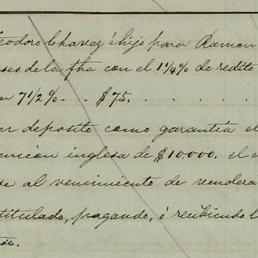 Teodoro Chavez é hijo para Ramon
ses de la fha con el 1¼% de redito
7 1/2% - $75.
deposito como garantía el
inglesa de $10.000. el
al vencimiento de
titulado, pagando, ó recibiendo l